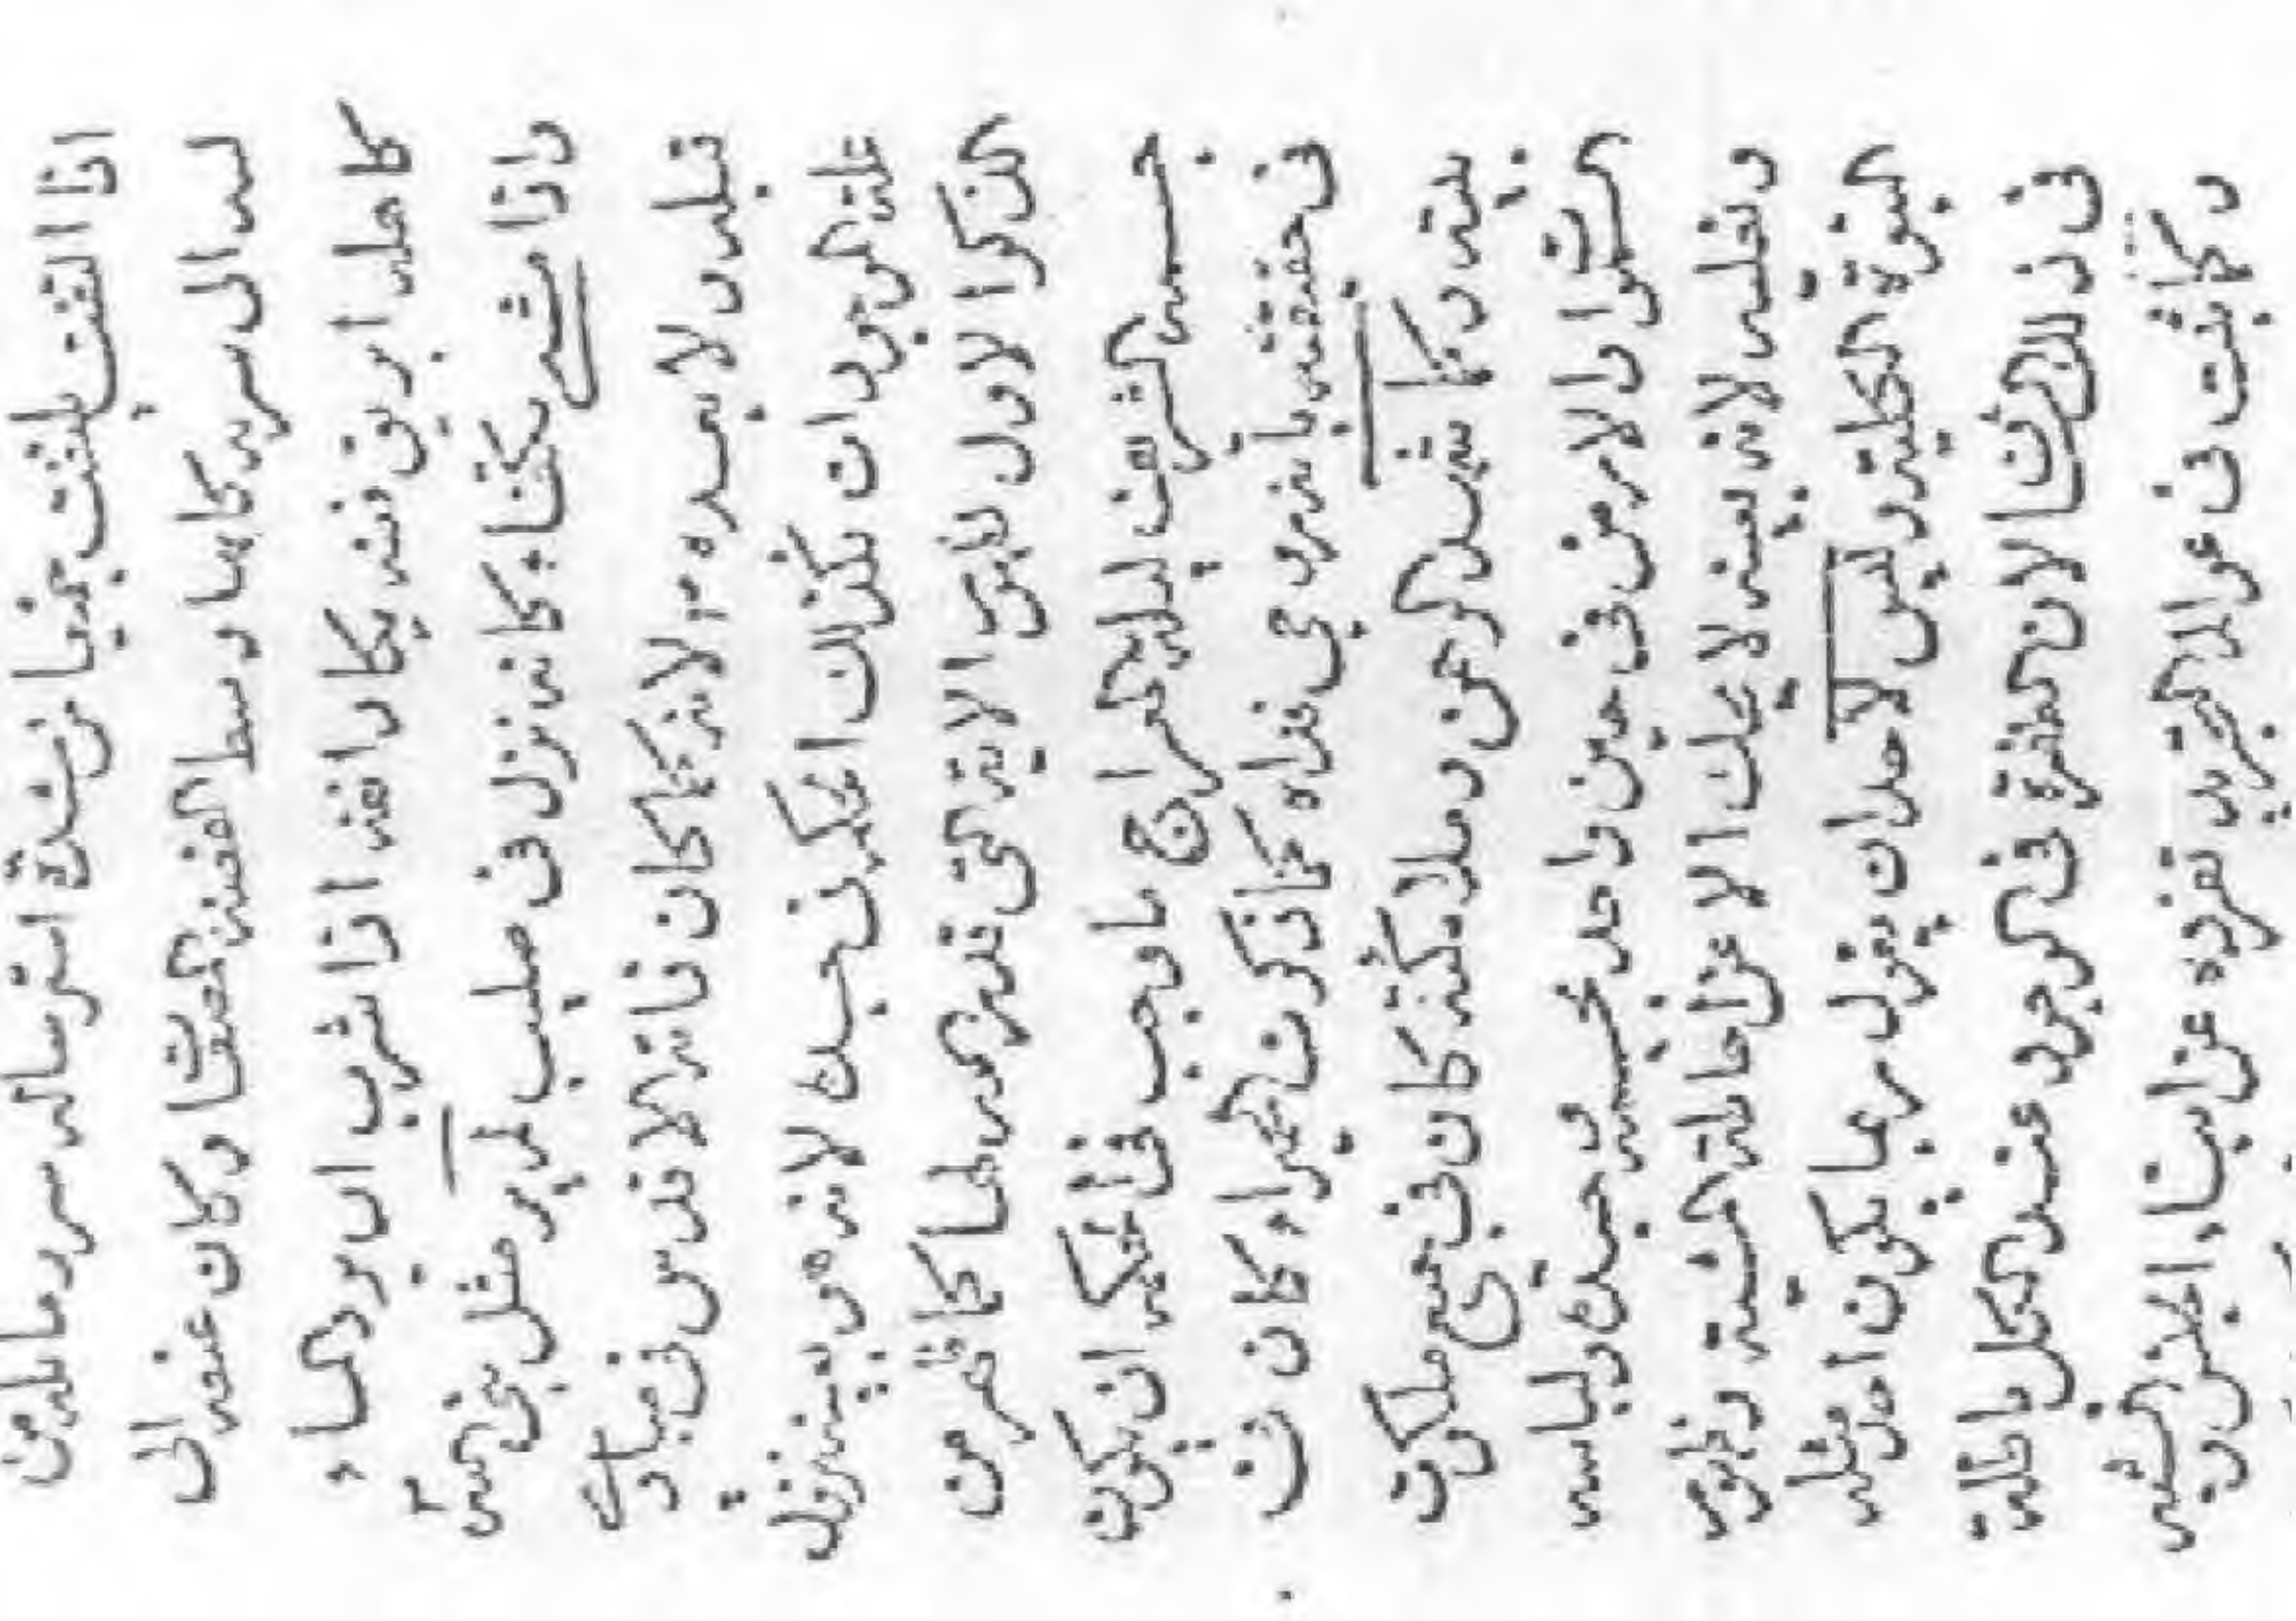 اذا التفت يلتفت جميعا من شدة استرساله سربه من
الى سرته كانها وسط الفضه المصفاة وكان عنقه الى
كاهله ابريق فضه يكاد انفه اذا شرب ان يرد الماء
واذا مشى يتكفاء كانه ينزل في صبب لم ير مثل نبى الله
قبله ولا بعده ولانه كما كان ذاته الاقدس في مبادى
علة الموجودات فكذلك الحكم في جسده لانه هو بمنزلة
المذكور الاول لهذه الاية التى قد من
جسمه الشريف ليلة المعراج ما وجب في الحكم ان يكون
في حقيقته وفى فؤاده كما ذكر كان
بيته وكما شهد الرحمن وملائكته كان في جميع ملكوت
السموات والارض في حين واحد بجسمه وجسده ولباسه
ونعليه لانه بعينه لا يحكى الا عن احاطة المشية وظهور
النبوة الكلية وليس لاحد ان يقول ربما يكون احد مثله
في ذلك الرتبة لان الطفرة في الوجود عند الكل باطلة
وكما ثبت في عوالم التجريد تفرده عن ابناء الجنس والشبه